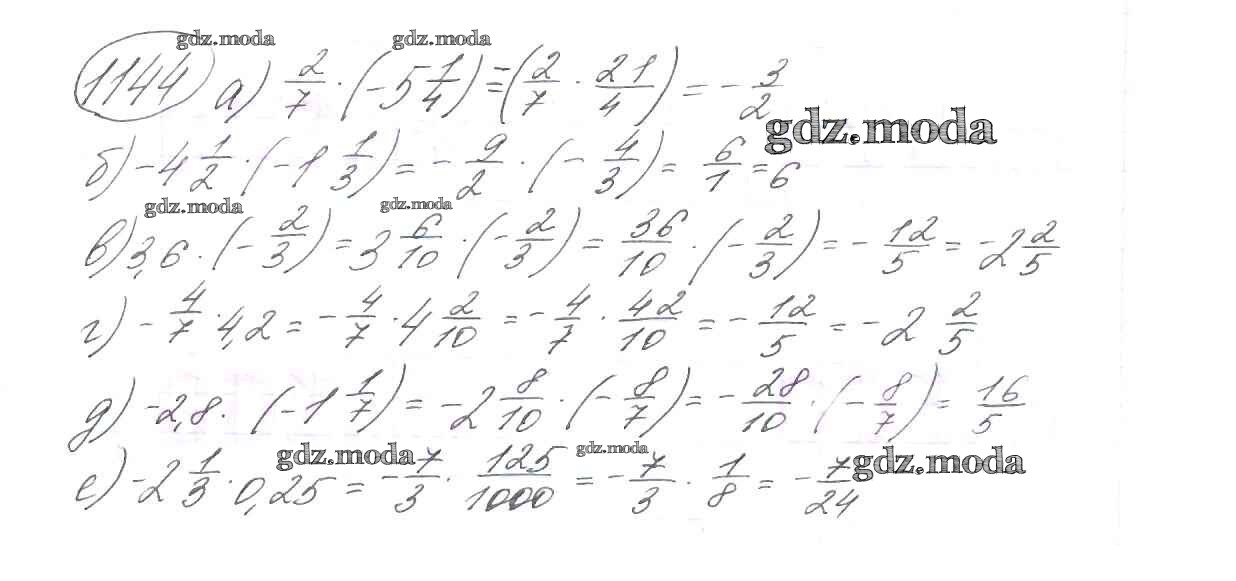 gdz.moda gdz.moda
1144 а) 2/7 · (-5 1/4) = -(2/7 · 21/4) = - 3/2
gdz.moda
б) -4 1/2 · (-1 1/3) = - 9/2 · (- 4/3) = 6/1 = 6
gdz.moda gdz.moda
в) 3,6 · (- 2/3) = 3 6/10 · (- 2/3) = 36/10 · (- 2/3) = - 12/5 = -2 2/5
г) - 4/7 · 4,2 = - 4/7 · 4 2/10 = - 4/7 · 42/10 = - 12/5 = -2 2/5
д) -2,8 · (-1 1/7) = -2 8/10 · (- 8/7) = - 28/10 · (- 8/7) = 16/5
gdz.moda gdz.moda gdz.moda
е) -2 1/3 · 0,25 = - 7/3 · 125/1000 = - 7/3 · 1/8 = - 7/24